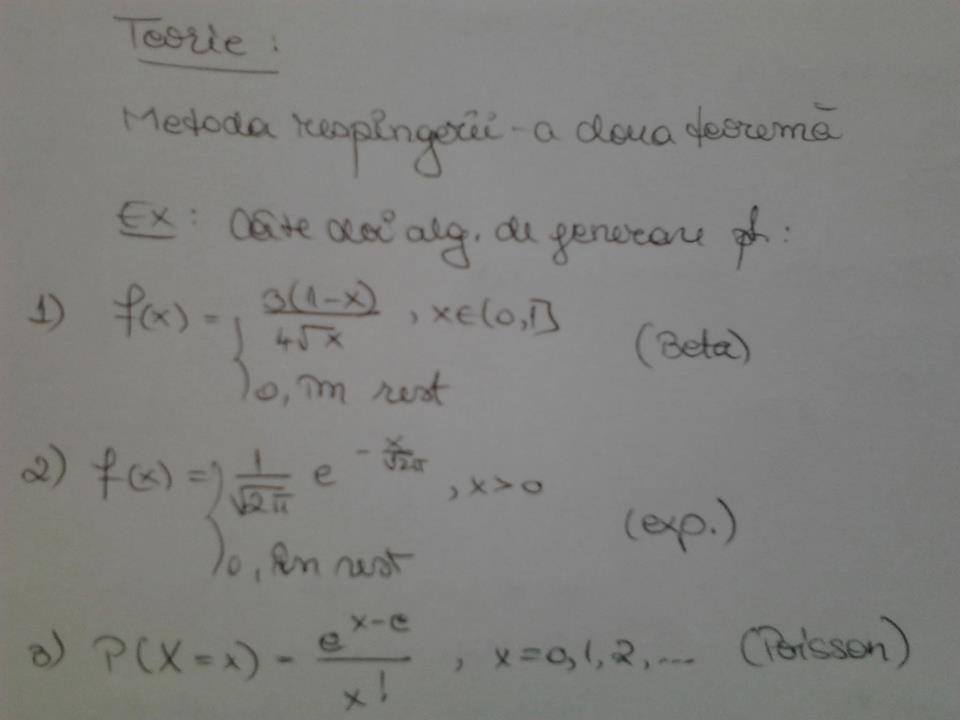 Teorie :
Metoda respingerii - a doua teoremă
Ex : Câte doi alg. de generare pt :
1) f(x) = { 3(1-x) / 4√x , x∈(0,1]
0, în rest
(Beta)
2) f(x) = { 1/√2π e^(-x/√2π) , x>0
0, în rest
(exp.)
3) P(X=x) = e^(x-e) / x! , x=0,1,2,... (Poisson)